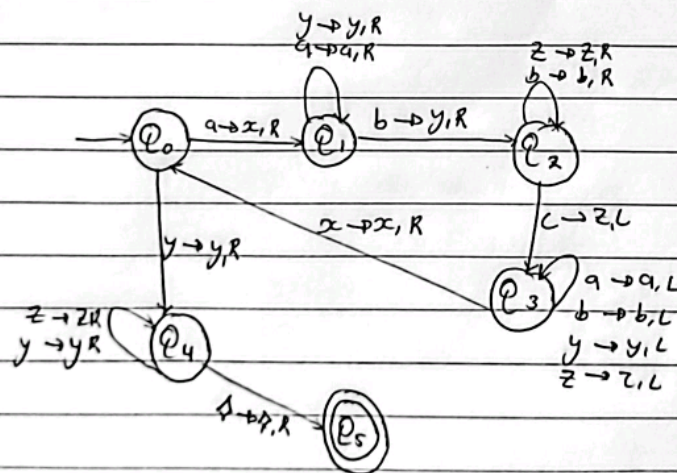 y → y, R
a → a, R
z → z, R
b → b, R
Q0
a → x, R
Q1
b → y, R
Q2
x → x, R
c → z, L
y → y, R
Q3
a → a, L
b → b, L
y → y, L
z → z, L
z → z R
y → y R
Q4
◊ → ◊, R
Q5